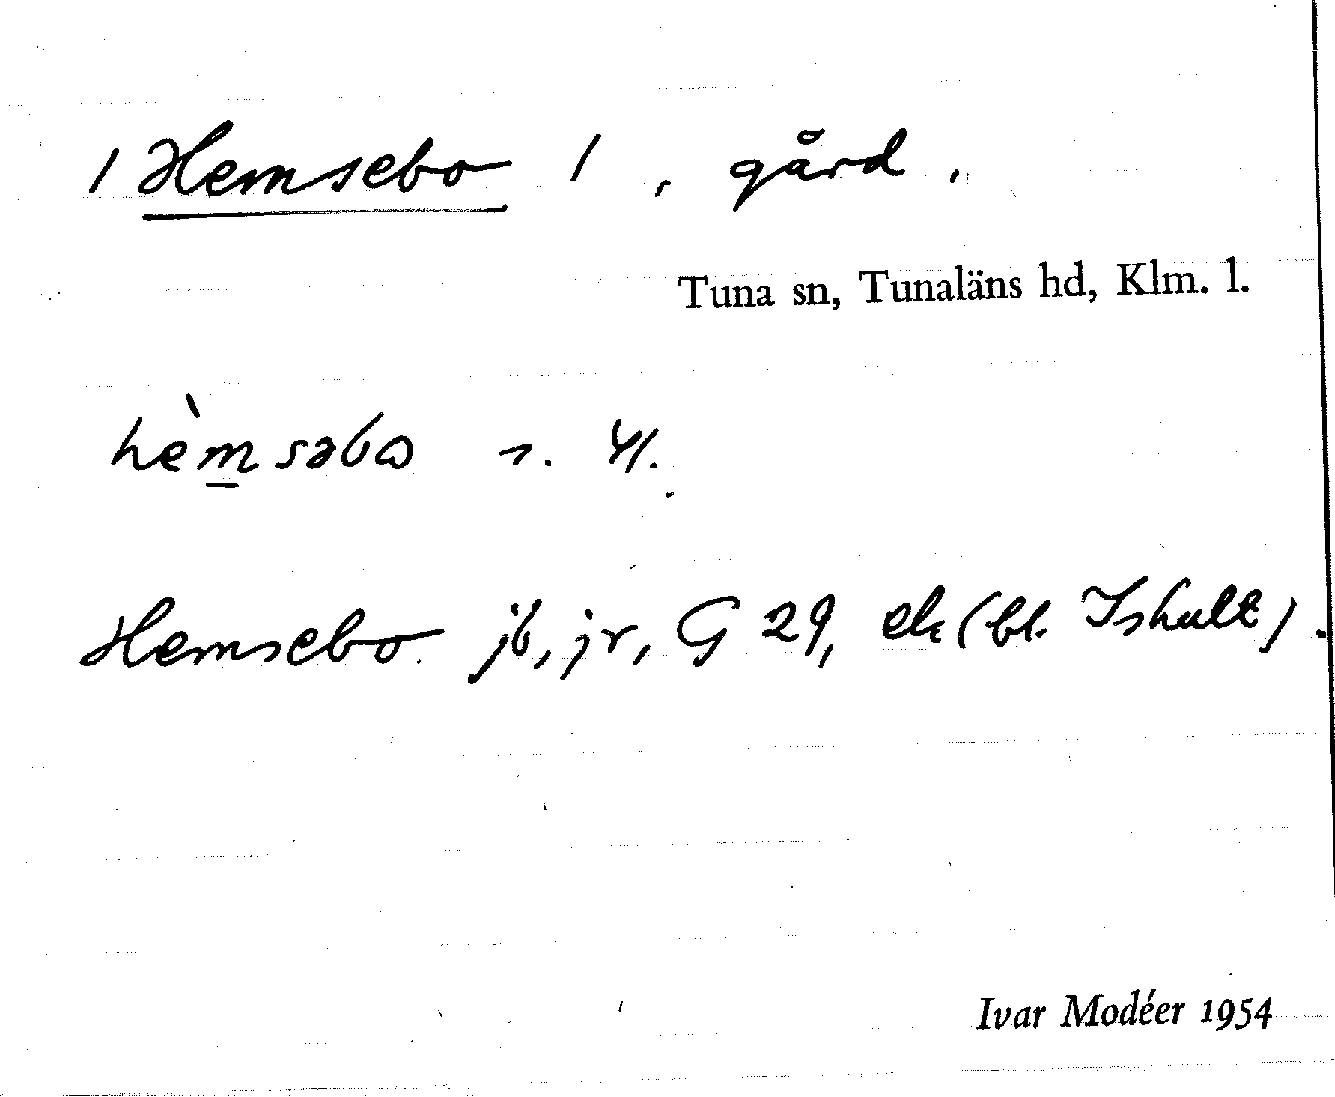 / Hemsebo /, gård.
Tuna sn, Tunaläns hd, Klm. l.
hèmsəbω
Hemsebo jb, jr, G 29, ek (bl. Ishult).
Ivar Modéer 1954